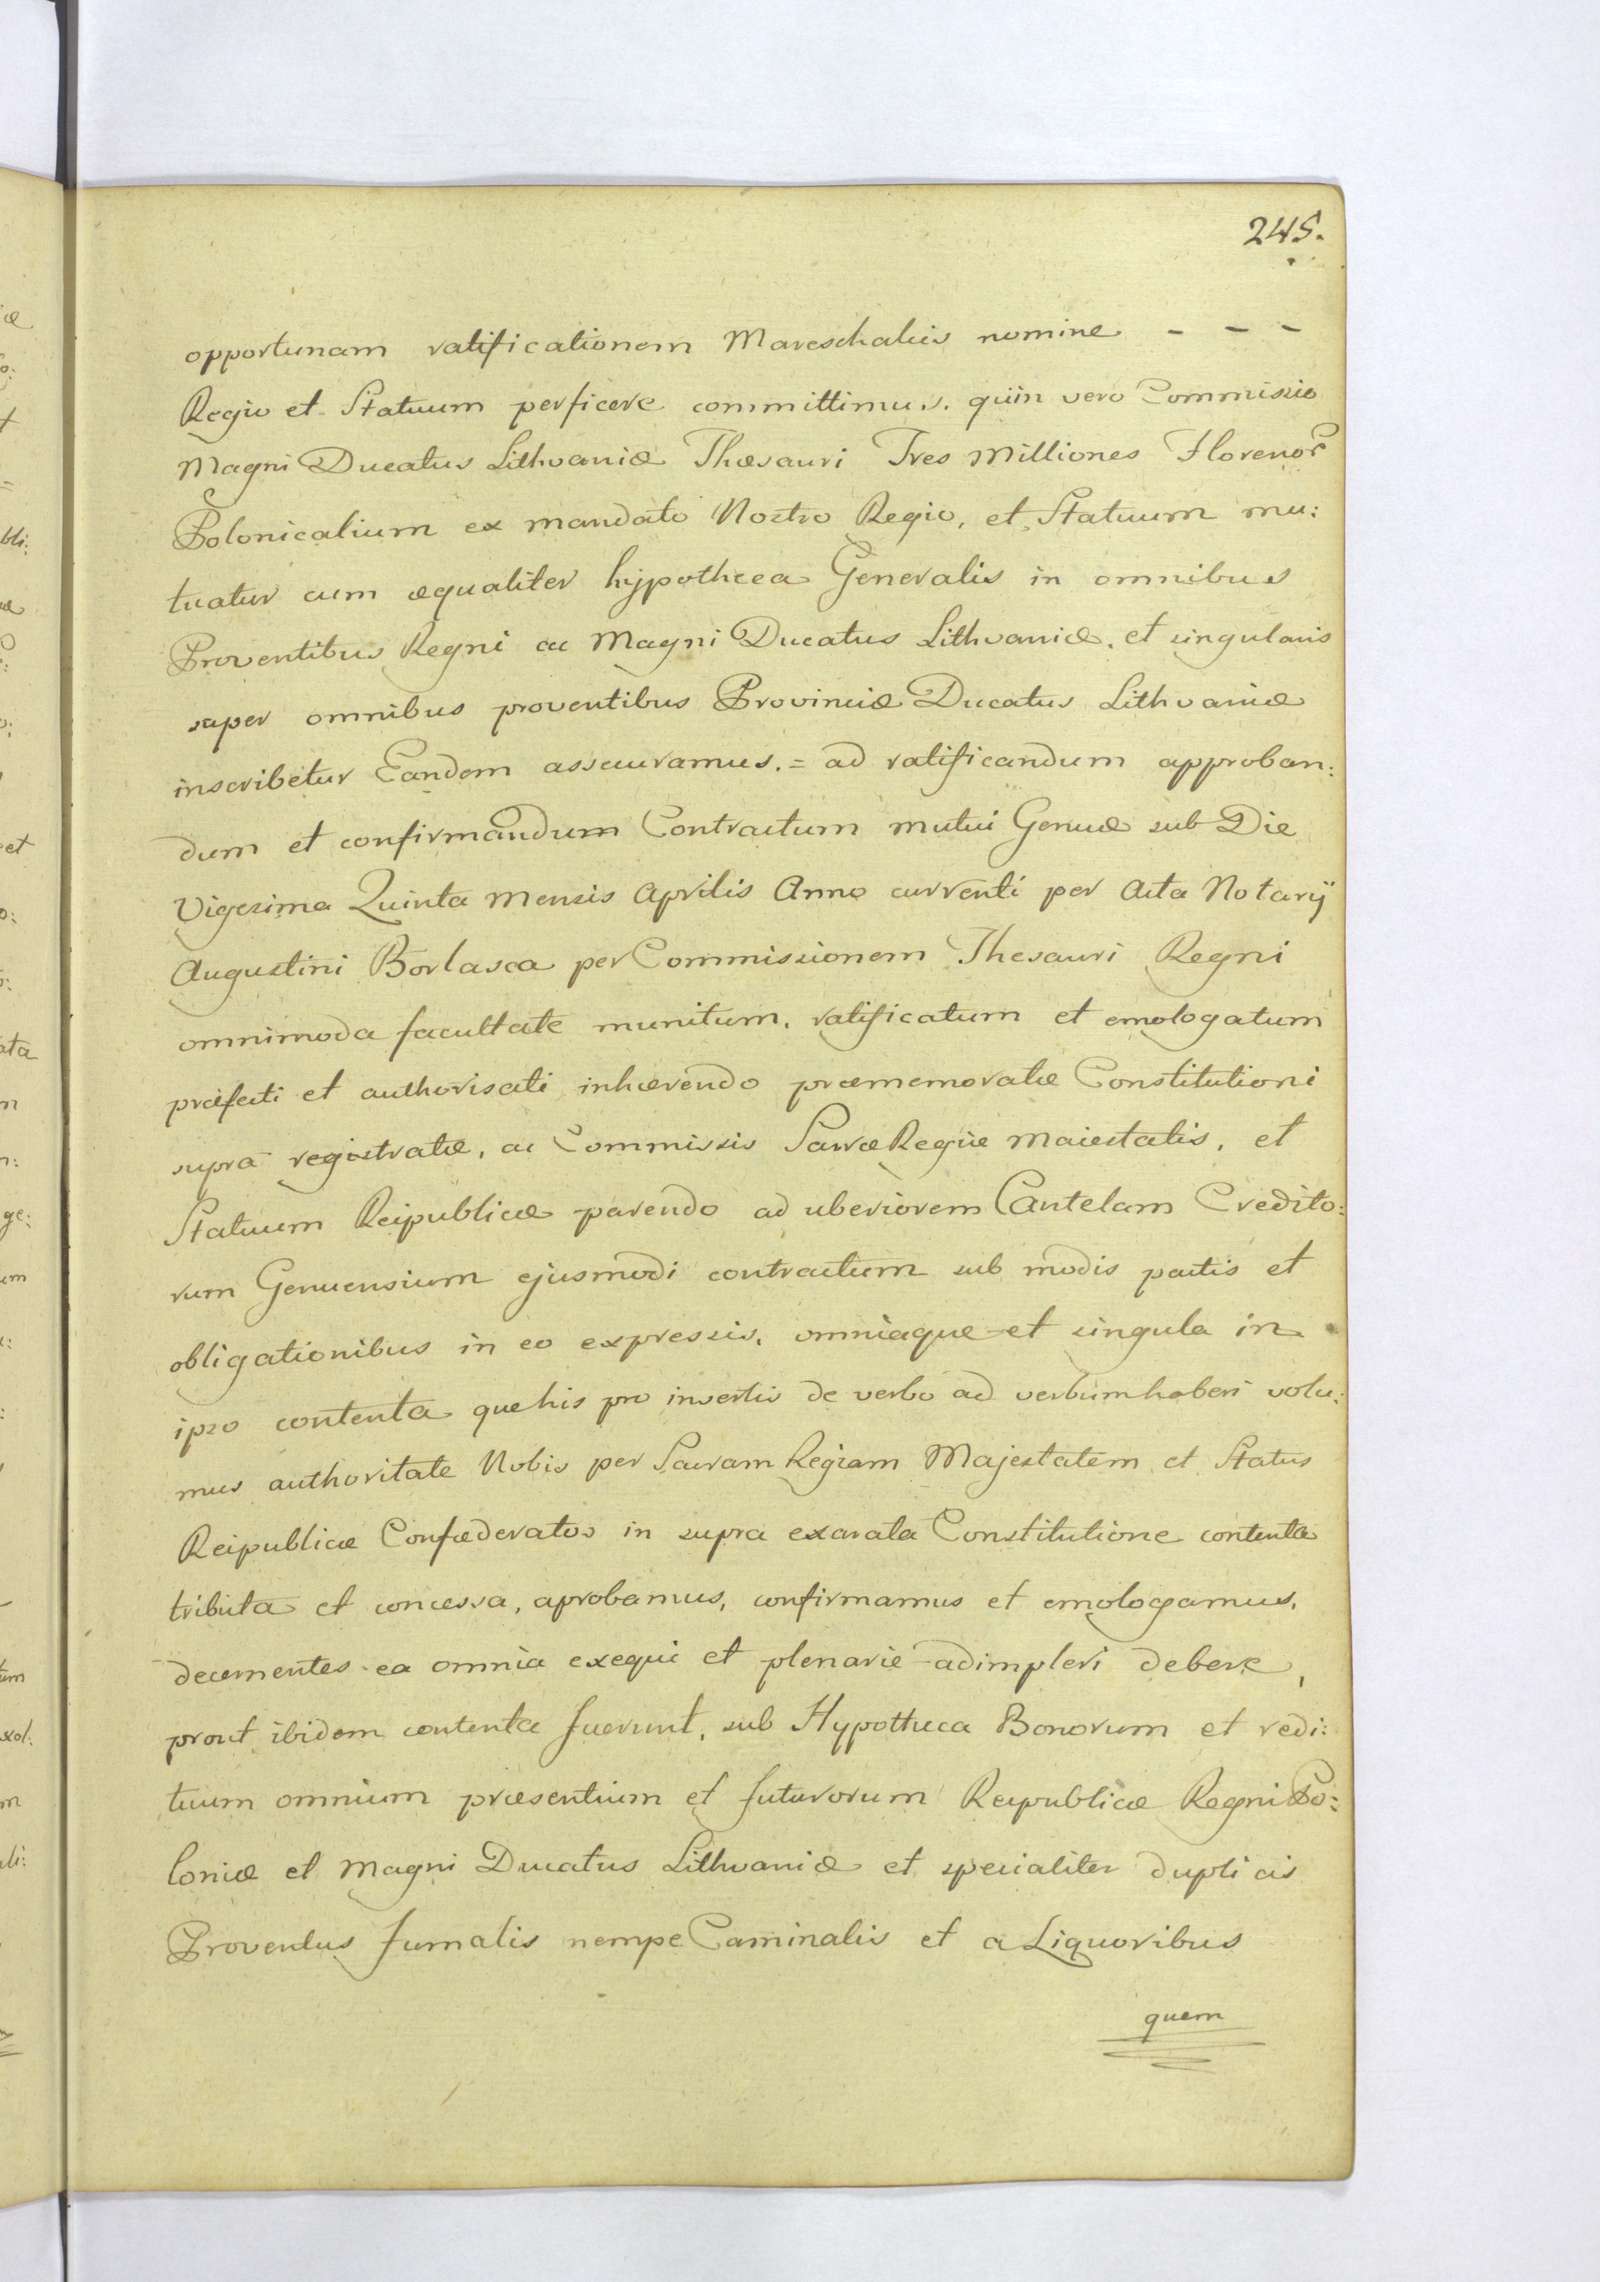 245.
opportunam ratificationem Mareschalcis nomine - - -
Regio et Statuum perficere committimus. quin vero Commissio
Magni Ducatus Lithvaniæ Thæsauri Tres Milliones Florenor
Polonicalium ex mandato Nostro Regio, et Statuum mu:
tuatur cum æqualiter hypotheca Generalis in omnibus
Proventibus Regni ac Magni Ducatus Lithvaniæ, et singularis
super omnibus proventibus Provinciæ Ducatus Lithvaniæ
inscribetur Eandem assecuramus. = ad ratificandum approban:
dum et confirmandum Contractum mutui Genuæ sub Die
Vigesima Quinta Mensis Aprilis Anno currenti per Acta Notarÿ
Augustini Borlasca per Commissionem Thesauri Regni
omnimoda facultate munitum, ratificatum et emologatum
præfecti et authorisati inhærendo præmemoratæ Constitutioni
supra registratæ, ac Commissis Sacræ Regiæ Maiestatis, et
Statuum Reipublicæ parendo ad uberiorem Cautelam Credito:
rum Genuensium ejusmodi contractum sub modis pactis et
obligationibus in eo expressis, omniaque et singula in
ipso contenta quæ his pro insertis de verbo ad verbum haberi volu:
mus authoritate Nobis per Sacram Regiam Majestatem et Status
Reipublicæ Confæderatos in supra exarata Constitutione contenta
tributa et concessa, aprobamus, confirmamus et emologamus,
decernentes ea omnia exequi et plenarie adimpleri debere,
prout ibidem contenta fuerunt, sub Hypotheca Bonorum et redi:
tuum omnium præsentium et futurorum Reipublicæ Regni Po:
loniæ et Magni Ducatus Lithvaniæ et specialiter duplicis
Proventus fumalis nempe Caminalis et a Liquoribus
quem